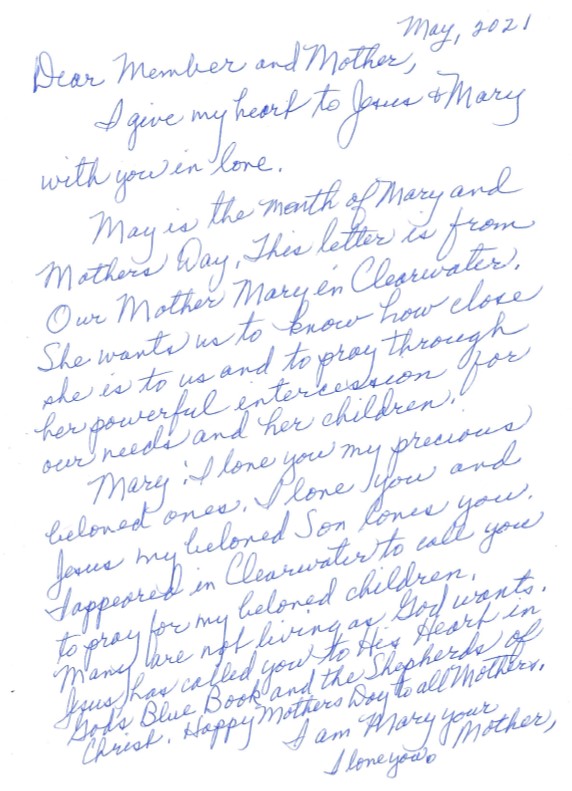 May, 2021
Dear Member and Mother,
I give my heart to Jesus & Mary
with you in love.
May is the month of Mary and
Mothers Day. This letter is from
Our Mother Mary in Clearwater.
She wants us to know how close
she is to us and to pray through
her powerful intercession for
our needs and her children.
Mary: I love you my precious
beloved ones. I love you and
Jesus my beloved Son loves you.
I appeared in Clearwater to call you
to pray for my beloved children.
Many are not living as God wants.
Jesus has called you to His Heart in
Gods Blue Book and the Shepherds of
Christ. Happy Mothers Day to all Mothers.
I am Mary your
Mother,
I love you.